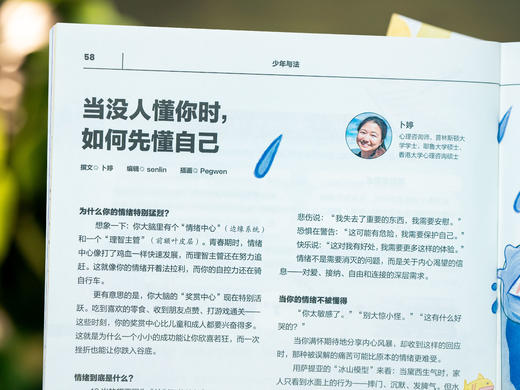 58
少年与法
当没人懂你时，
如何先懂自己
撰文 卜婷 编辑 senlin 插画 Pegwen
卜婷
心理咨询师，普林斯顿大
学学士，耶鲁大学硕士，
香港大学心理咨询硕士
为什么你的情绪特别猛烈？
想象一下：你大脑里有个“情绪中心”（边缘系统）
和一个“理智主管”（前额叶皮层）。青春期时，情绪
中心像打了鸡血一样快速发展，而理智主管还在努力追
赶。这就像你的情绪开着法拉利，而你的自控力还在骑
自行车。
更有意思的是，你大脑的“奖赏中心”现在特别活
跃。吃到喜欢的零食、收到朋友点赞、打游戏通关——
这些时刻，你的奖赏中心比儿童和成人都要兴奋得多。
这就是为什么一个小小的成功能让你欣喜若狂，而一次
挫折也能让你跌入谷底。
情绪到底是什么？
悲伤说：“我失去了重要的东西，我需要安慰。”
恐惧在警告：“这可能有危险，我需要保护自己。”
快乐说：“这对我有好处，我需要更多这样的体验。”
情绪不是需要消灭的问题，而是关于内心渴望的信
息——对爱、接纳、自由和连接的深层需求。
当你的情绪不被懂得
“你太敏感了。”“别大惊小怪。”“这有什么好
哭的？”
当你满怀期待地分享内心风暴，却收到这样的回应
时，那种被误解的痛苦可能比原本的情绪更难受。
用萨提亚的“冰山模型”来看：当黛西生气时，家
人只看到水面上的行为——摔门、沉默、发脾气。但水